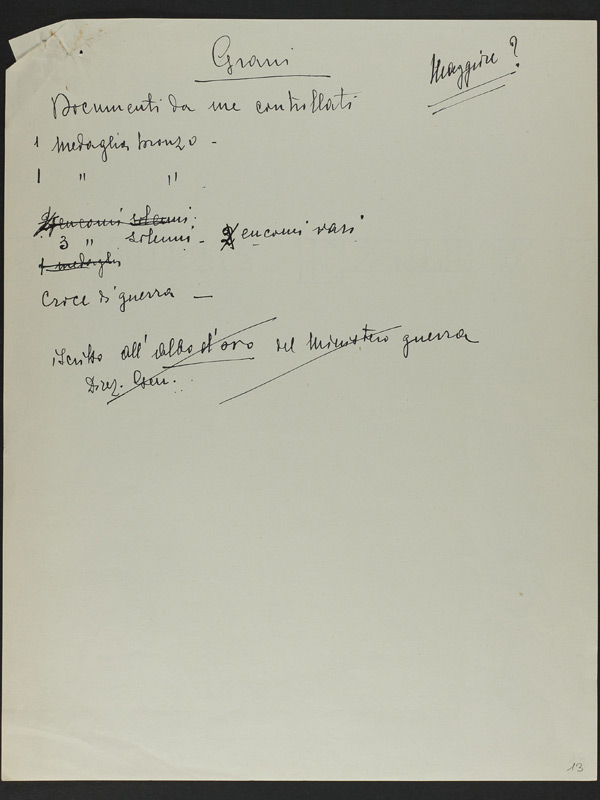 Grani
Maggiore?
Documenti da me controllati
1 medaglia bronzo -
1 " "
encomi solenni
3 " solenni - 2 encomi vari
1 medaglia
Croce di guerra —
iscritto all'albo d'oro del Ministero guerra
Direz. Gen.
13